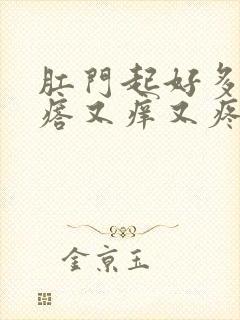 肛門起好多
瘩又痒又疼
金京玉